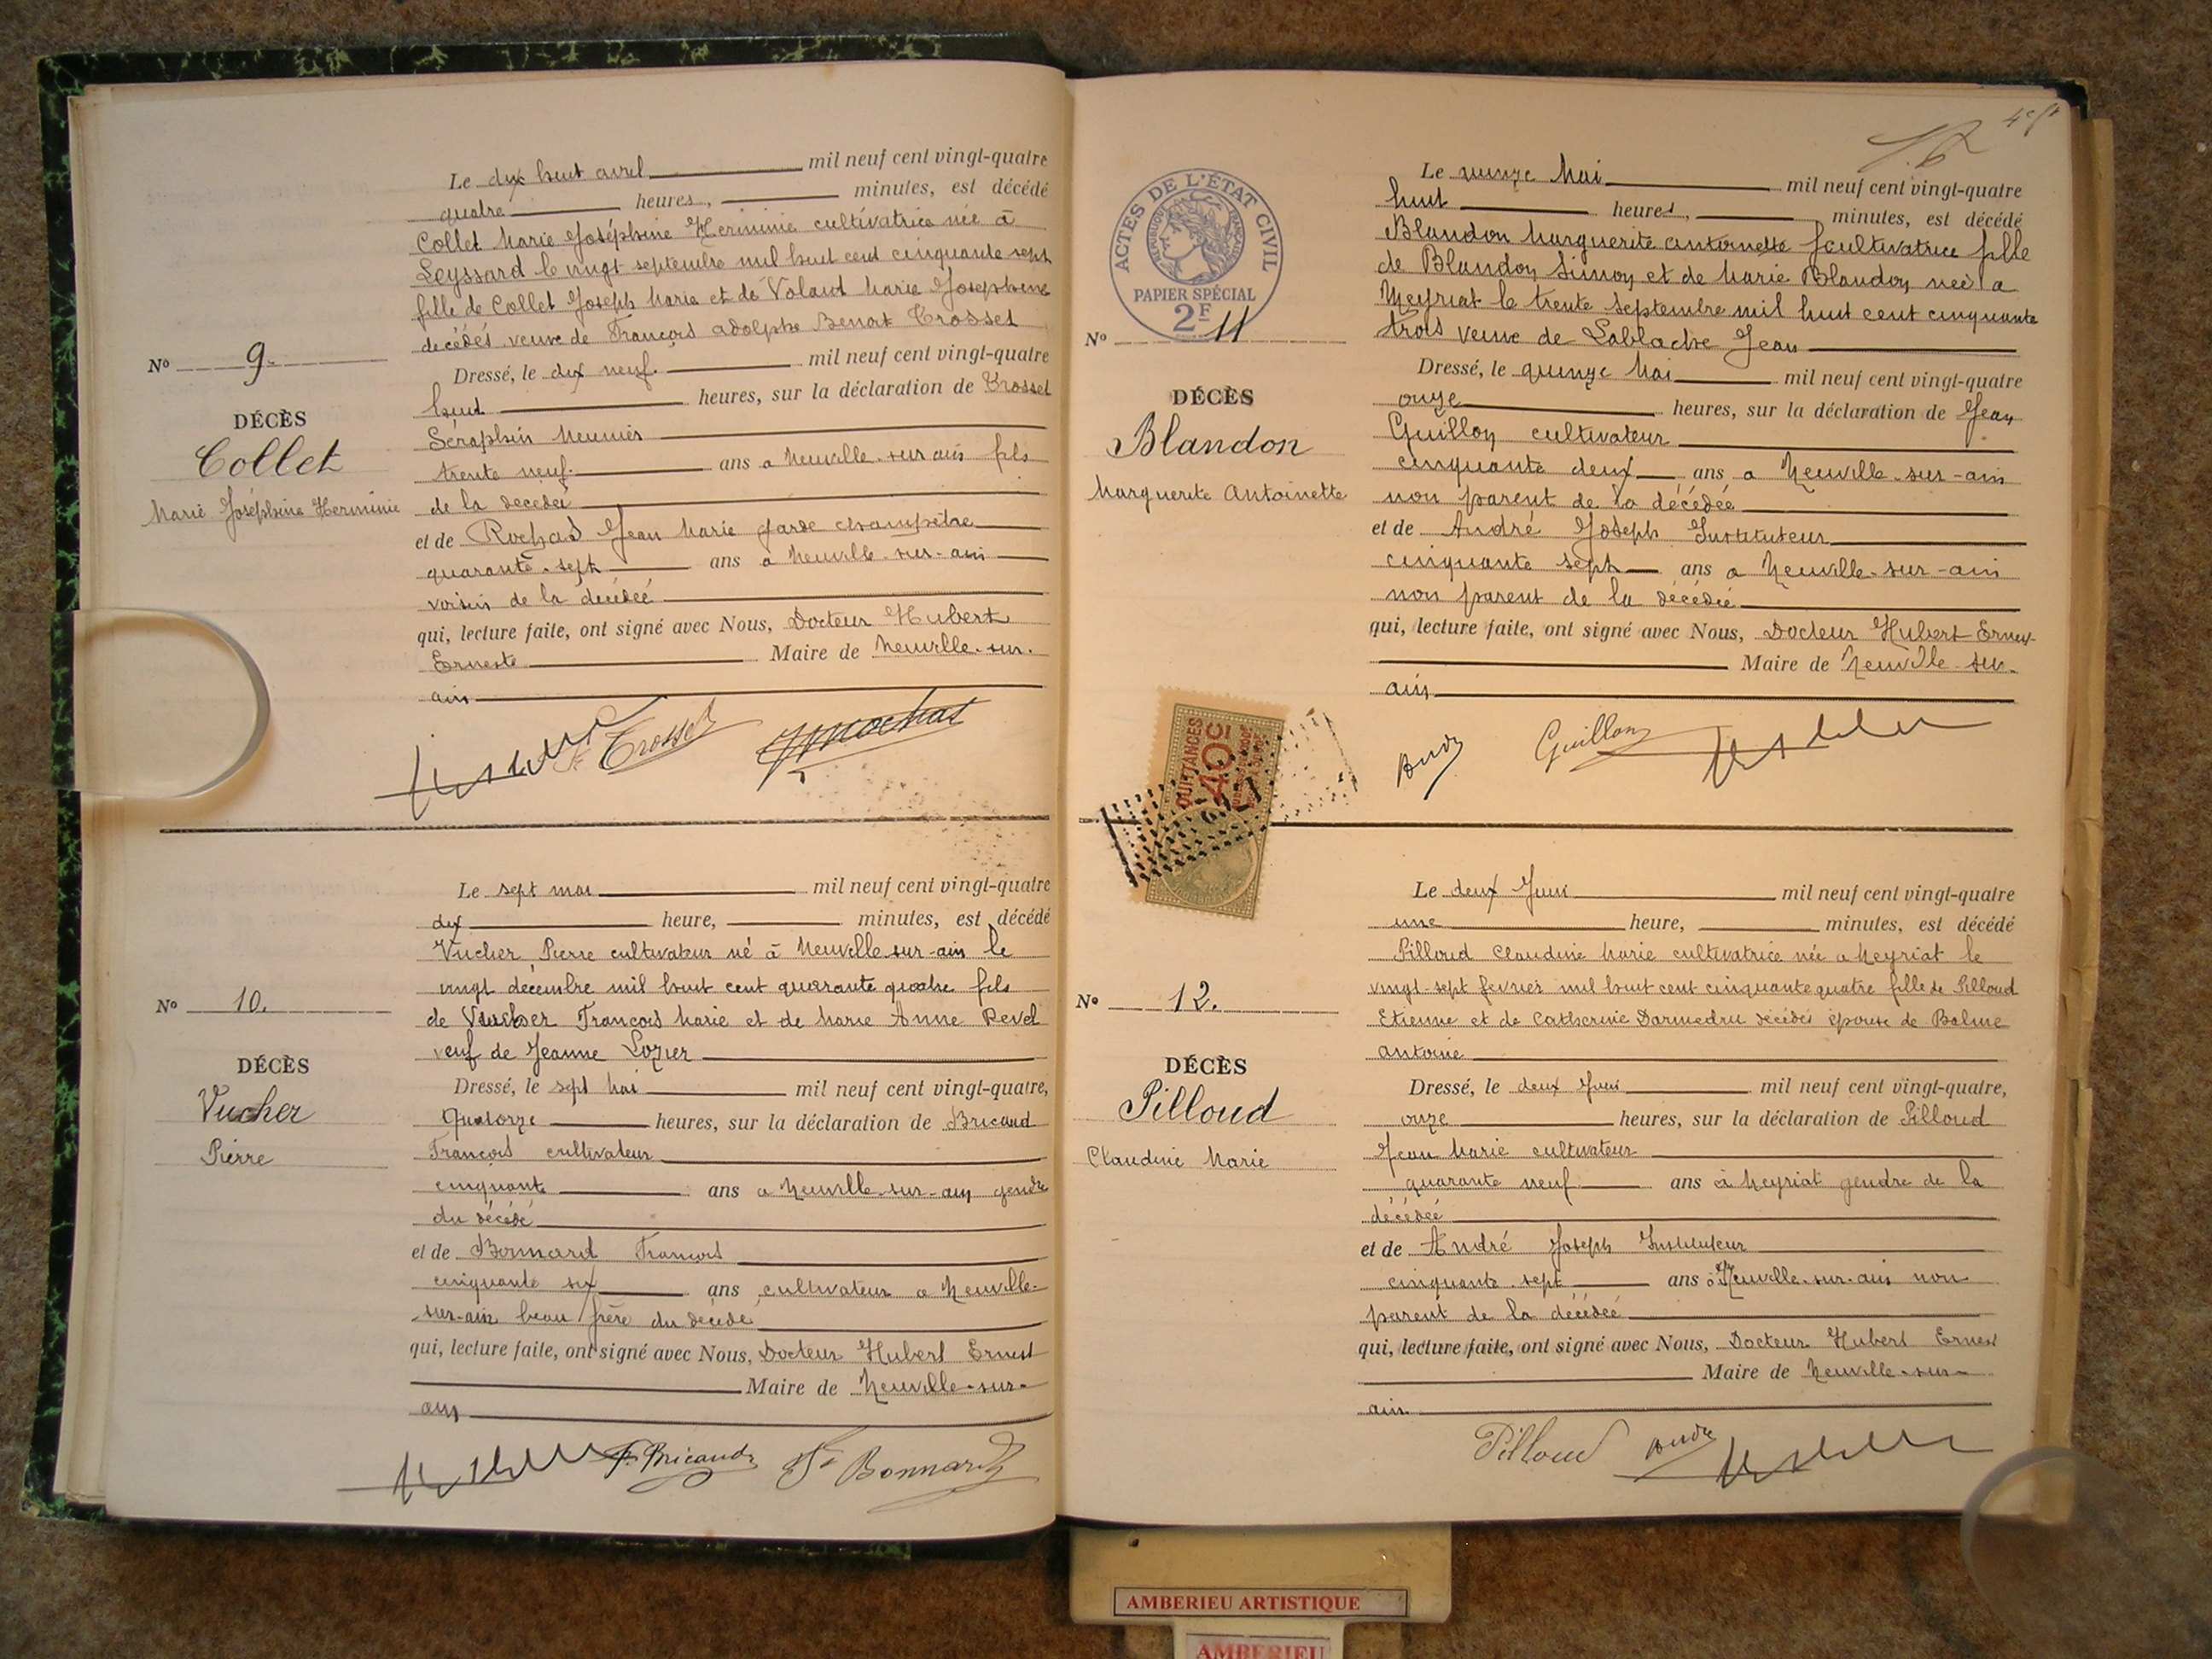 Le dix huit avril mil neuf cent vingt-quatre
quatre heures, minutes, est décédé
Collet Marie Joséphine Herminie cultivatrice née à
Leyssard le vingt septembre mil huit cent cinquante sept
fille de Collet Joseph Marie et de Volant Marie Josephine
décédés veuve de François Adolphe Benoit Crosset
Nº 9.
Dressé, le dix neuf mil neuf cent vingt-quatre
huit heures, sur la déclaration de Crosset
DÉCÈS
Collet
Marie Joséphine Herminie
Séraphin Meunier
trente neuf ans a Neuville-sur-ain fils
de la décédée
et de Rochas Jean Marie garde champêtre
quarante-sept ans a Neuville-sur-ain
voisin de la décédée
qui, lecture faite, ont signé avec Nous, Docteur Hubert
Erneste Maire de Neuville-sur-
ain
Crosset
Rochas
Le sept mai mil neuf cent vingt-quatre
dix heure, minutes, est décédé
Vucher Pierre cultivateur né à Neuville-sur-ain le
vingt décembre mil huit cent quarante quatre fils
de Vucher François Marie et de Marie Anne Revel
veuf de Jeanne Lozier
Nº 10.
DÉCÈS
Vucher
Pierre
Dressé, le sept Mai mil neuf cent vingt-quatre,
Quatorze heures, sur la déclaration de Bricaud
François cultivateur
cinquante ans a Neuville-sur-ain gendre
du décédé
et de Bonnard François
cinquante six ans cultivateur a Neuville-
sur-ain beau frère du décédé
qui, lecture faite, ont signé avec Nous, Docteur Hubert Ernest
Maire de Neuville-sur-
ain
F. Bricaud
Bonnard
Le quinze Mai mil neuf cent vingt-quatre
huit heures, minutes, est décédé
Blandon Marguerite antoinette cultivatrice fille
de Blandon Simon et de Marie Blandon née a
Meyriat le trente Septembre mil huit cent cinquante
trois veuve de Lablache Jean
ACTES DE L'ÉTAT CIVIL
RÉPUBLIQUE FRANÇAISE
PAPIER SPÉCIAL
2F
Nº 11
DÉCÈS
Blandon
Marguerite Antoinette
Dressé, le quinze Mai mil neuf cent vingt-quatre
onze heures, sur la déclaration de Jean
Guillon cultivateur
cinquante deux ans a Neuville-sur-ain
non parent de la décédée
et de André Joseph Instituteur
cinquante sept ans a Neuville-sur-ain
non parent de la décédée
qui, lecture faite, ont signé avec Nous, Docteur Hubert Ernest
Maire de Neuville-sur-
ain
André
Guillon
QUITTANCES
40c
Le deux Juin mil neuf cent vingt-quatre
une heure, minutes, est décédé
Pilloud Claudine Marie cultivatrice née a Meyriat le
vingt-sept fevrier mil huit cent cinquante quatre fille de Pilloud
Etienne et de Catherine Darmedru décédés épouse de Balme
antoine
Nº 12.
DÉCÈS
Pilloud
Claudine Marie
Dressé, le deux Juin mil neuf cent vingt-quatre,
onze heures, sur la déclaration de Pilloud
Jean Marie cultivateur
quarante neuf ans à Meyriat gendre de la
décédée
et de André Joseph Instituteur
cinquante sept ans à Neuville-sur-ain non
parent de la décédée
qui, lecture faite, ont signé avec Nous, Docteur Hubert Ernest
Maire de Neuville-sur-
ain
Pilloud
André
AMBERIEU ARTISTIQUE
AMBERIEU